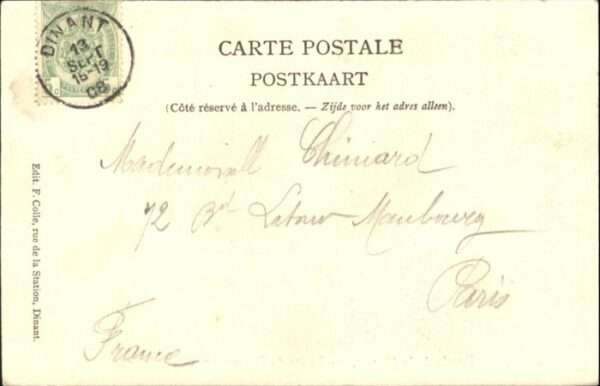 DINANT
13
SEPT
18-19
08
CARTE POSTALE
POSTKAART
(Côté réservé à l'adresse. — Zijde voor het adres alleen).
Mademoiselle Chimard
72 Bd Latour Maubourg
Paris
France
Edit. F. Colle, rue de la Station, Dinant.